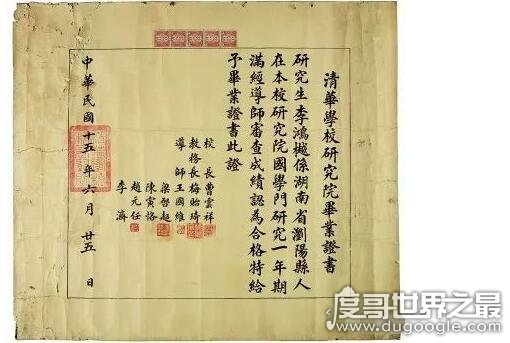 清華學校研究院畢業證書
研究生李鴻樾係湖南省瀏陽縣人
在本校研究院國學門研究一年期
滿經導師審查成績認為合格特給
予畢業證書此證
校長曹雲祥
教務長梅貽琦
導師王國維
梁啓超
陳寅恪
趙元任
李濟
中華民國十五年六月廿五日
度哥世界之最
www.dugoogle.com